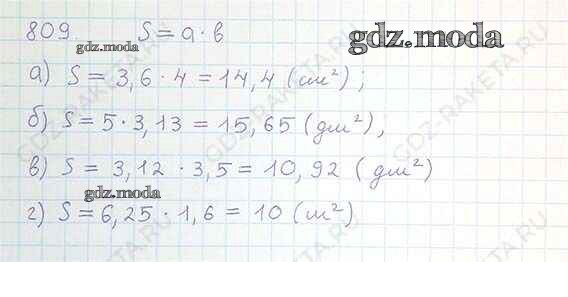 809. S = a · b
gdz.moda
gdz.moda
а) S = 3,6 · 4 = 14,4 (см²);
б) S = 5 · 3,13 = 15,65 (дм²);
в) S = 3,12 · 3,5 = 10,92 (дм²)
gdz.moda
г) S = 6,25 · 1,6 = 10 (м²)
GDZ-RAKETA.RU
GDZ-RAKETA.RU